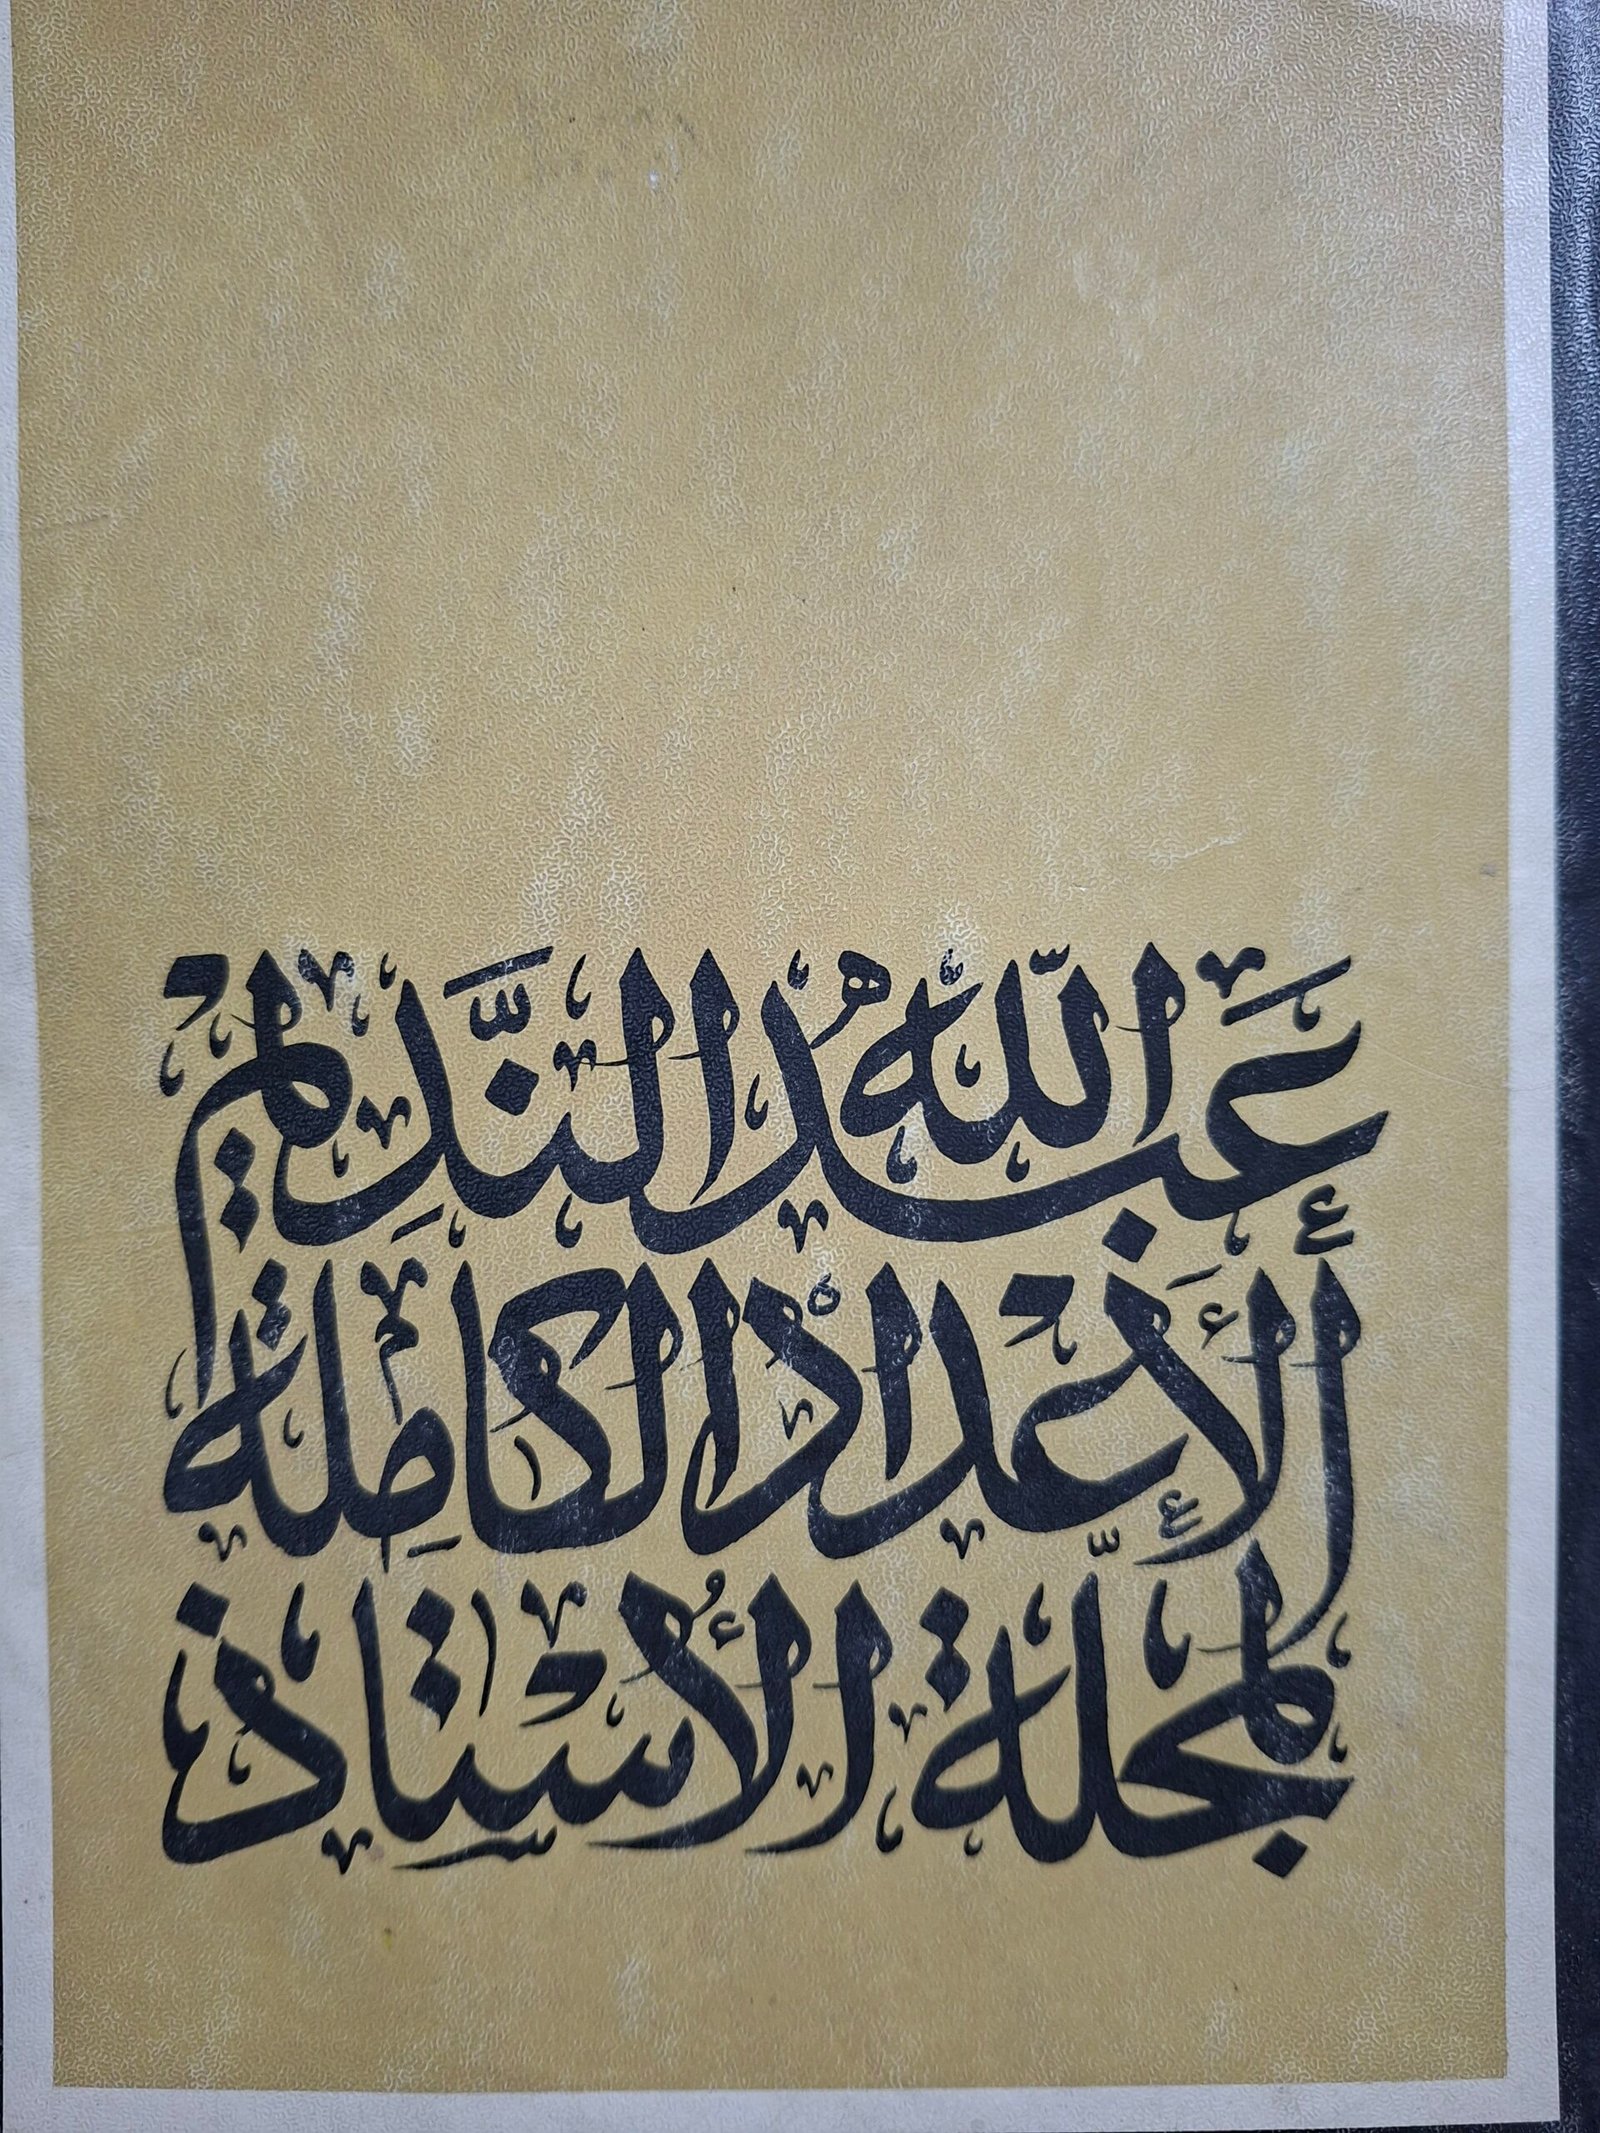 عَبْدُ اللّٰه النَّدِيم
الأَعْدَادُ الكَامِلَة
لمجلّة الأُسْتَاذ